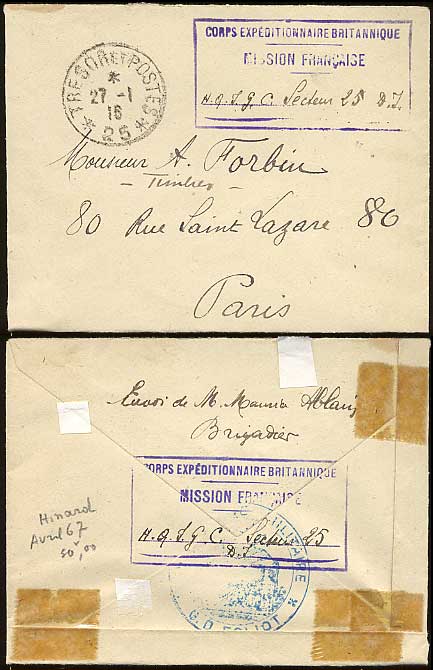 CORPS EXPÉDITIONNAIRE BRITANNIQUE
MISSION FRANÇAISE
H.Q. I.G.C. Secteur 25 D.I.
* TRESOR ET POSTES *
*
27 -1
16
25
Monsieur A. Forbin
- Timbres -
80 Rue Saint Lazare 80
Paris
Envoi de M.
Brigadier
CORPS EXPÉDITIONNAIRE BRITANNIQUE
MISSION FRANÇAISE
H.Q. I.G.C. Secteur 25
D.I.
Hinard
Avril 67
50,00